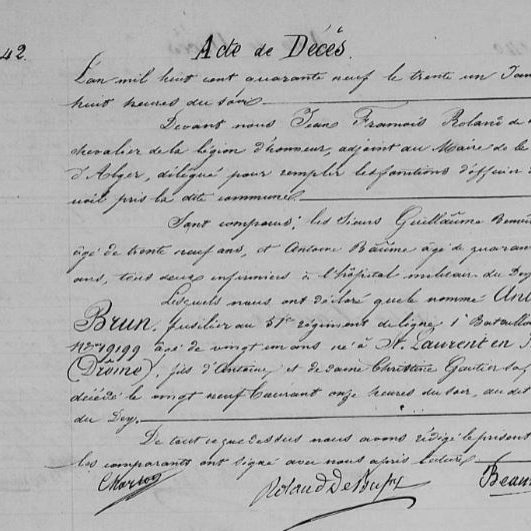 42.
Acte de Décès.
L'an mil huit cent quarante neuf le trente un Jan
huit heures du soir
Devant nous Jean François Roland de
chevalier de la légion d'honneur, adjoint au Maire de la
d'Alger, délégué pour remplir les fonctions d'officier
vil pris la dite commune
Sont comparus: les Sieurs Guillaume
âgé de trente neuf ans, et Antoine Baume âgé de quaran
ans, tous deux infirmiers à l'hôpital militaire du Dey
Lesquels nous ont déclaré que le nommé
Brun, fusilier au 51e régiment de ligne, 1er Bataillon
No 19199 âgé de vingt un ans né à St. Laurent en
(Drôme), fils d'Antoine, et de dame Christine Gautier
décédé le vingt neuf Courant onze heures du soir, au dit
du Dey.
De tout ce que dessus nous avons rédigé le présent
les comparants ont signé avec nous après lecture
Roland De Bussy